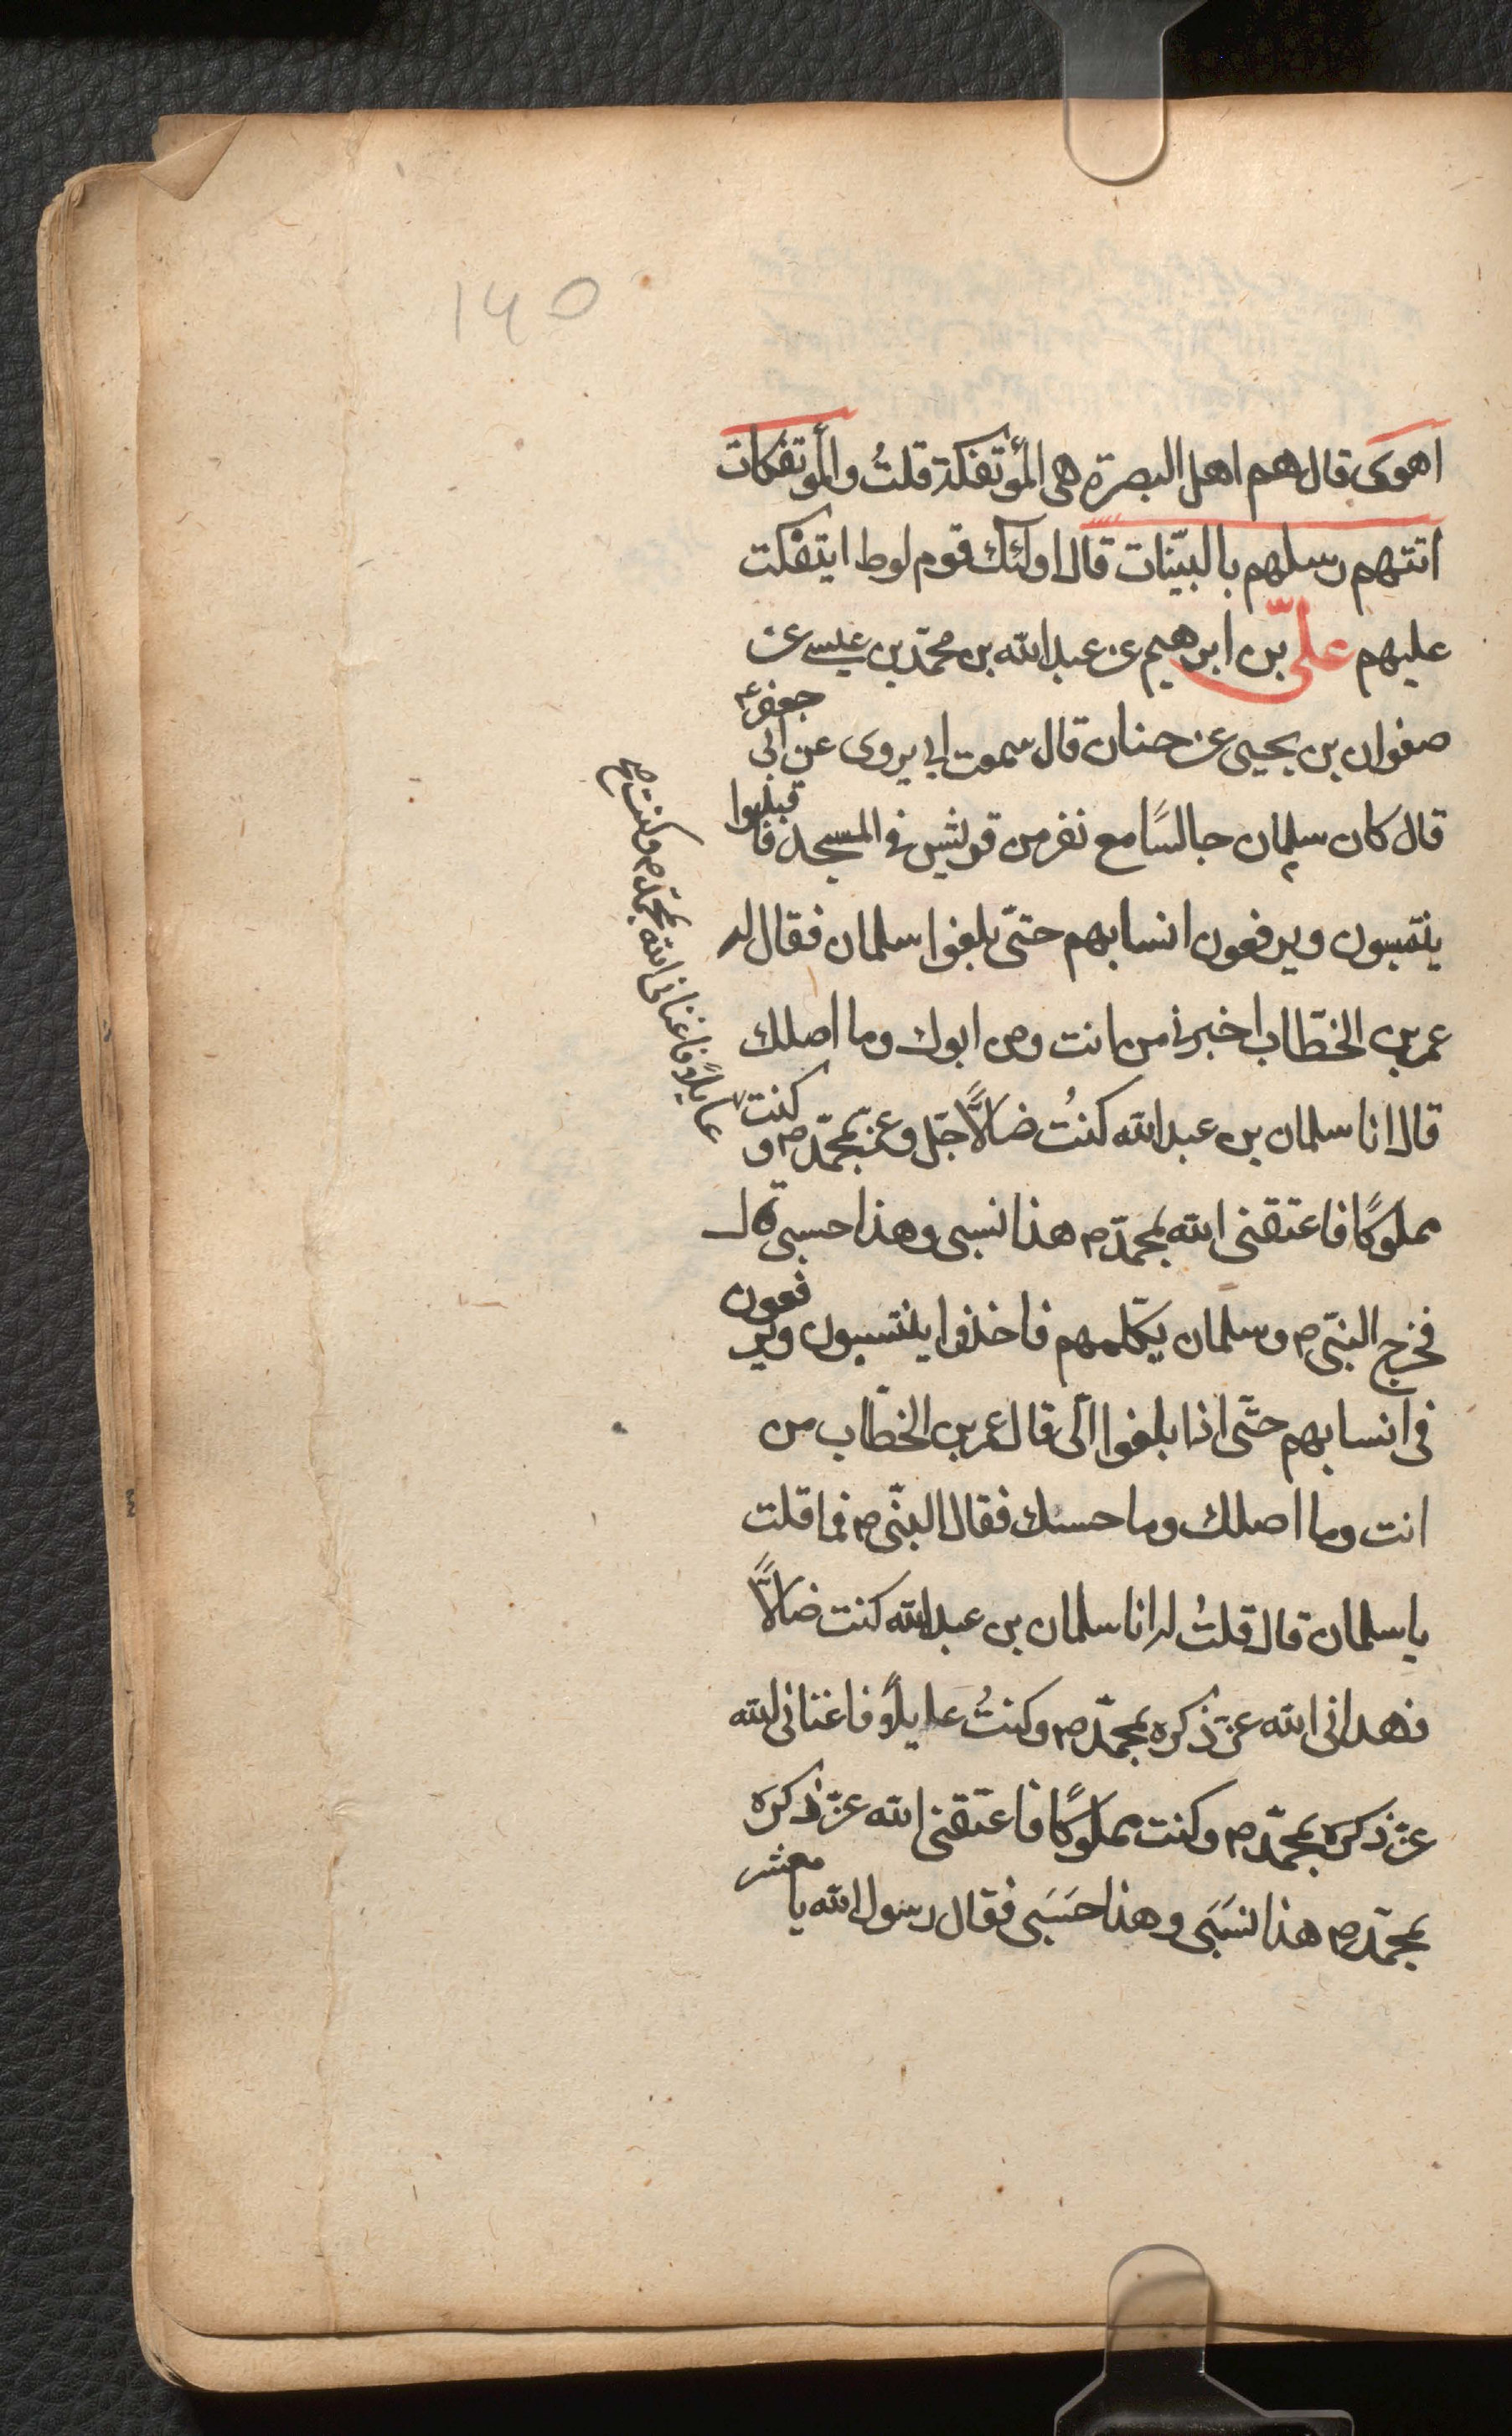 ١٤٥
اهوى قال هم اهل البصرة هى المؤتفكة قلتُ والمؤتفكات
اتتهم رسلهم بالبيّنات قال اولئك قوم لوط ايتفكت
عليهم علىّ بن ابرهيم عن عبدالله بن محمّد بن عيسى عن
صفوان بن يحيى عن حنان قال سمعت ابى يروى عن ابى جعفر ع
قال كان سلمان جالسًا مع نفر من قريش فى المسجد فاقبلوا
ينتسبون ويرفعون انسابهم حتّى بلغوا سلمان فقال له
عمر بن الخطّاب اخبرنى من انت ومن ابوك وما اصلك
قال انا سلمان بن عبدالله كنتُ ضالًّا جلّ وعزّ بمحمّد ص و كنت
عايلًا فاغنانى الله بمحمّد ص وكنت صح
مملوكًا فاعتقنى الله بمحمّد ص هذا نسبى وهذا حسبى قال
فخرج النبىّ ص وسلمان يكلّمهم فاخذوا ينتسبون ويرفعون
فى انسابهم حتّى اذا بلغوا الىّ قال عمر بن الخطّاب من
انت وما اصلك وما حسبك فقال النبىّ ص فما قلت
يا سلمان قال قلتُ له انا سلمان بن عبدالله كنت ضالًّا
فهدانى الله عزّ ذكره بمحمّد ص وكنتُ عايلًا فاغنانى الله
عزّ ذكره بمحمّد ص وكنت مملوكًا فاعتقنى الله عزّ ذكره
بمحمّد ص هذا نسَبَى وهذا حَسَبى فقال رسول الله يا معشر